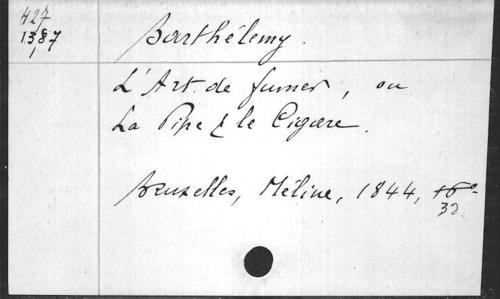 427
1387
1
Barthélemy.
L'Art de fumer, ou
La Pipe & le Cigare.
Bruxelles, Méline, 1844, 16°
32